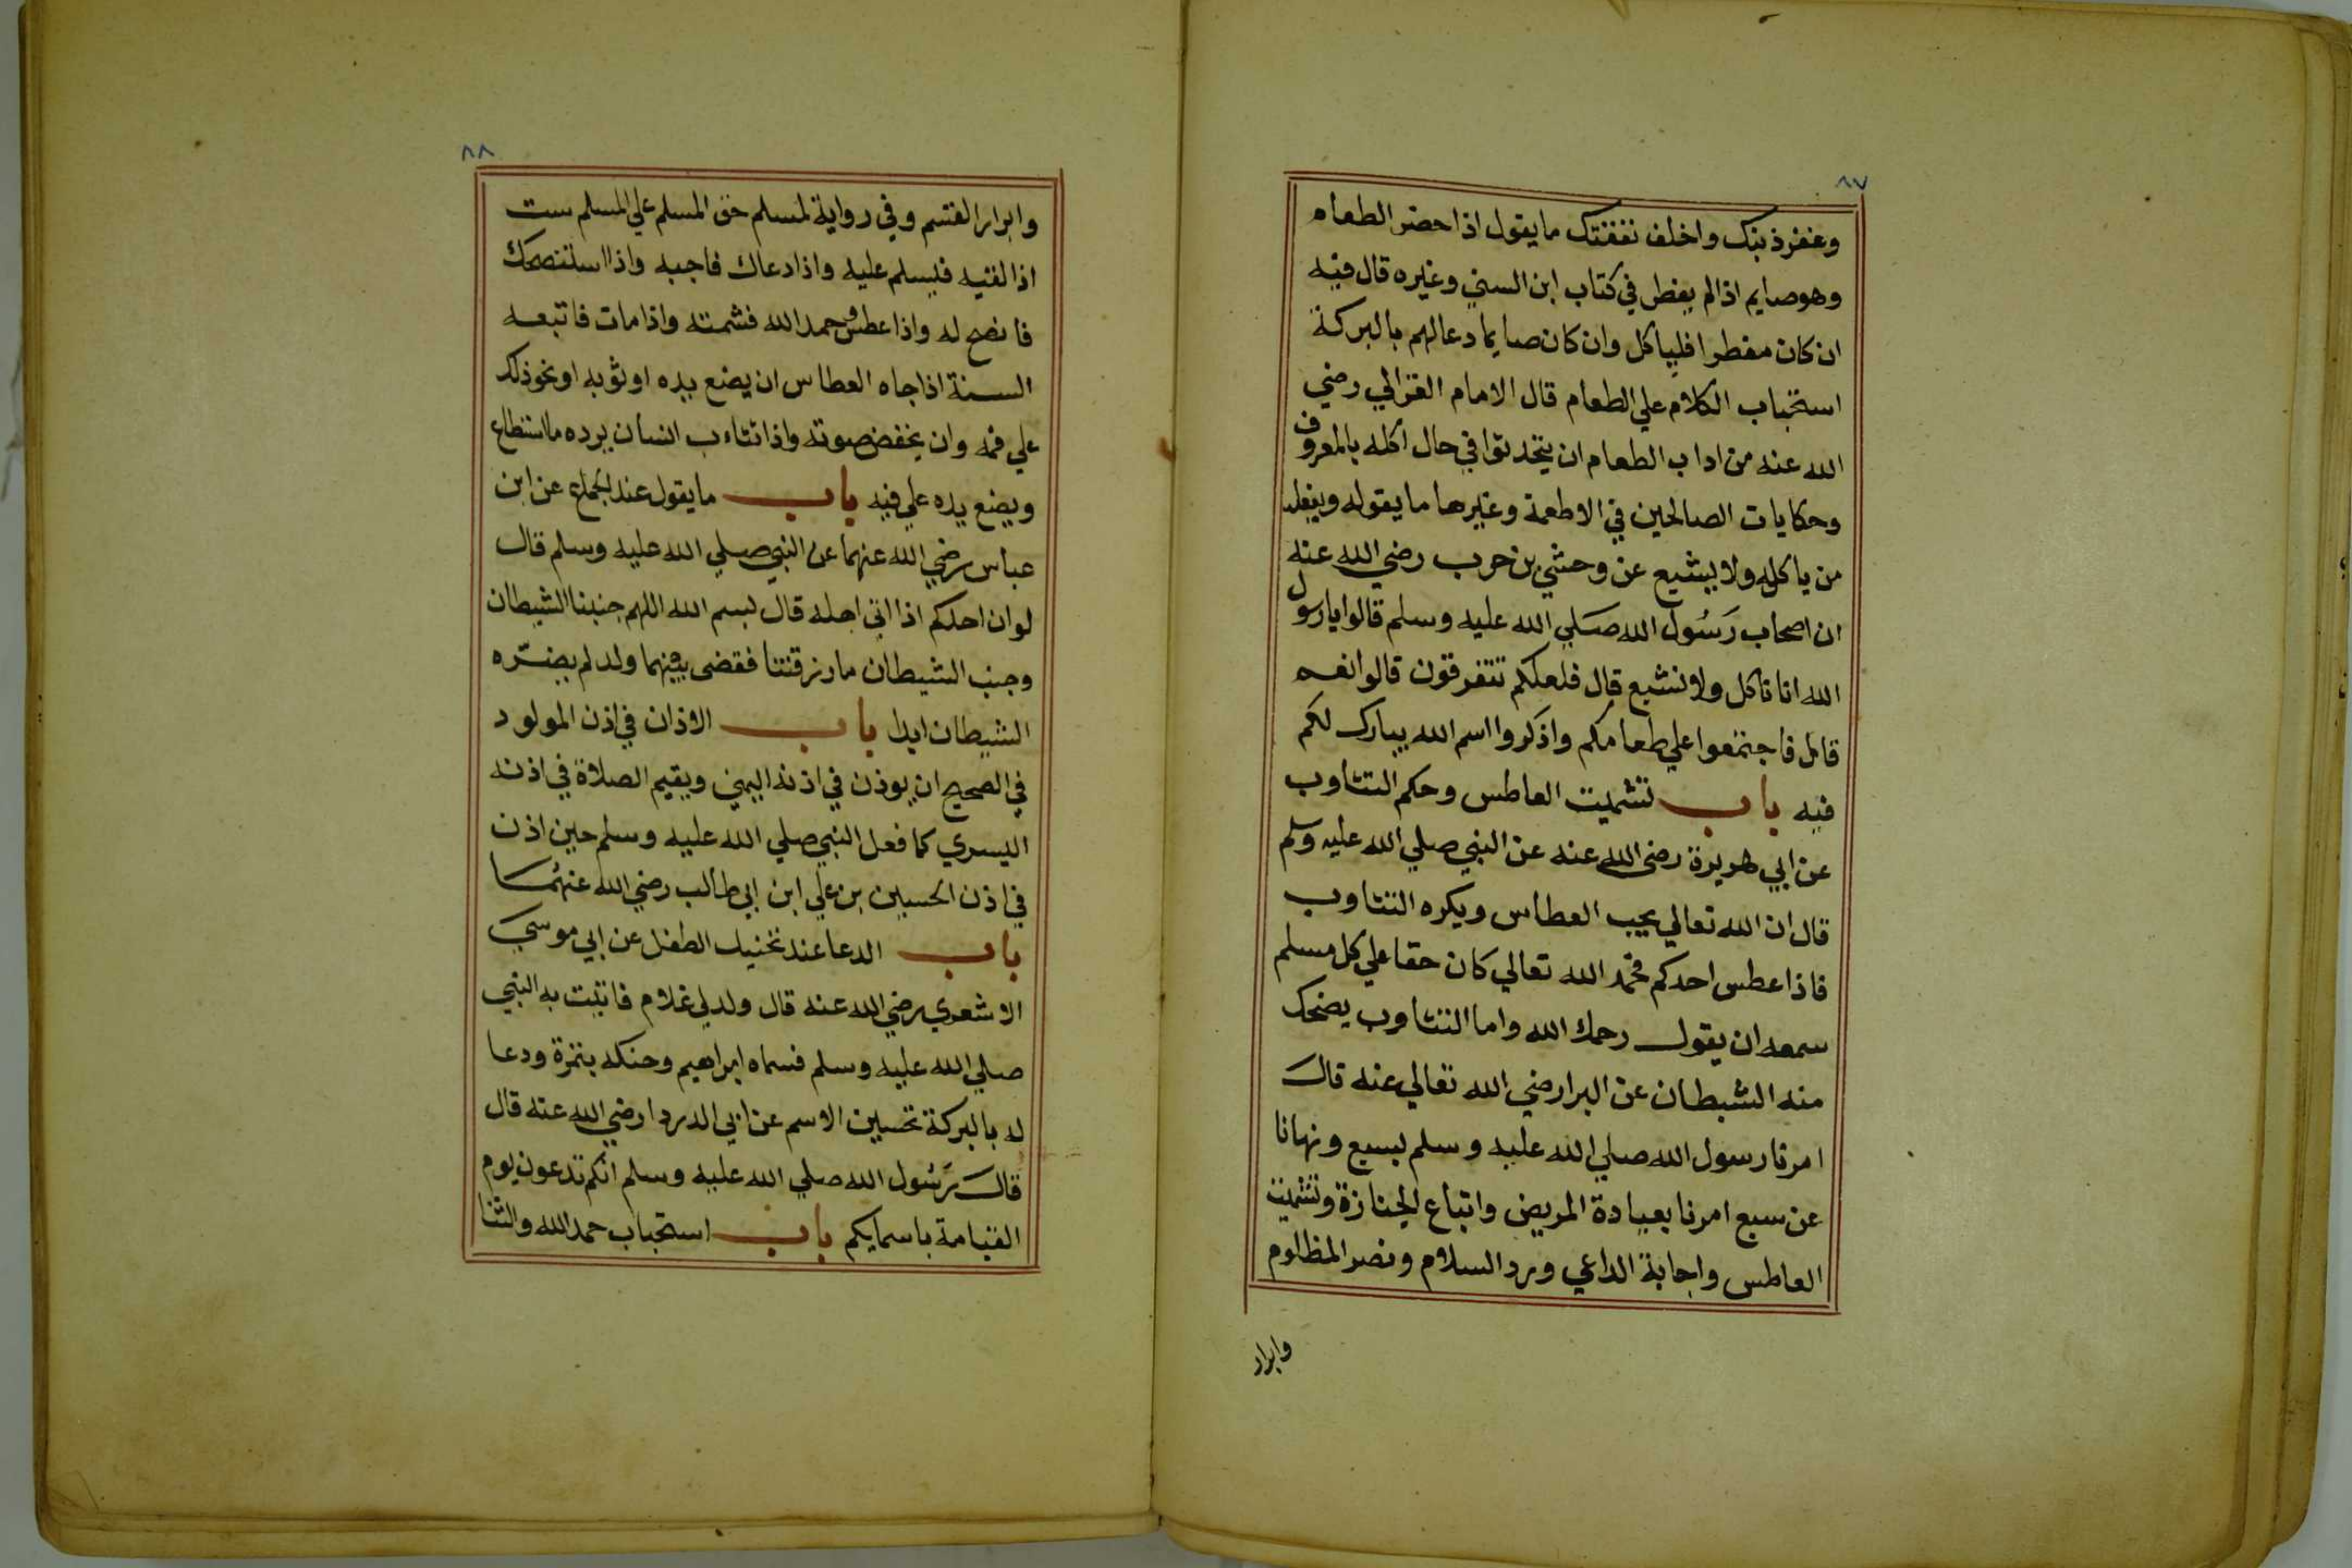 ٨٧
وغفر ذنبك واخلف نفقتك ما يقول اذا حضر الطعام
وهو صايم اذا لم يفطر في كتاب ابن السني وغيره قال فيه
ان كان مفطرا فلياكل وان كان صايما دعا لهم بالبركة
استحباب الكلام علي الطعام قال الامام الغزالي رضي
الله عنه من اداب الطعام ان يتحدثوا في حال اكله بالمعروف
وحكايات الصالحين في الاطعمة وغيرها ما يقوله ويفعله
من ياكل ولا يشبع عن وحشي بن حرب رضي الله عنه
ان اصحاب رَسُول الله صَلي الله عليه وسلم قالوا يا رسول
الله انا ناكل ولا نشبع قال فلعلكم تتفرقون قالوا نعم
قال فاجتمعوا علي طعامكم واذكروا اسم الله يبارك لكم
فيه باب تشميت العاطس وحكم التثاوب
عن ابي هريرة رضي الله عنه عن النبي صلي الله عليه وسلم
قال ان الله تعالي يحب العطاس ويكره التثاوب
فاذا عطس احدكم فحمد الله تعالي كان حقا علي كل مسلم
سمعه ان يقول رحمك الله واما التثاوب يضحك
منه الشيطان عن البرا رضي الله تعالي عنه قال
امرنا رسول الله صلي الله عليه وسلم بسبع ونهانا
عن سبع امرنا بعيادة المريض واتباع الجنازة وتشميت
العاطس واجابة الداعي ورد السلام ونصر المظلوم
وابرار
٨٨
وابرار القسم وفي رواية لمسلم حق المسلم علي المسلم ست
اذا لقيه فليسلم عليه واذا دعاك فاجبه واذا استنصحك
فانصح له واذا عطس وحمد الله فشمته واذا مات فاتبعه
السنة اذا جاه العطاس ان يضع يده او ثوبه او نحو ذلك
علي فمه وان يخفض صوته واذا تثاءب السان يرده ما استطاع
ويضع يده علي فيه باب ما يقول عند الجماع عن ابن
عباس رضي الله عنهما عن النبي صلي الله عليه وسلم قال
لو ان احدكم اذا اتي اهله قال بسم الله اللهم جنبنا الشيطان
وجنب الشيطان ما رزقتنا فقضى بينهما ولد لم يضرّه
الشيطان ابدا باب الاذان في اذن المولود
في الصحيح ان يوذن في اذنه اليمني ويقيم الصلاة في اذنه
اليسري كما فعل النبي صلي الله عليه وسلم حين اذن
في اذن الحسين بن علي ابن ابي طالب رضي الله عنهُما
باب الدعا عند تحنيك الطفل عن ابي موسي
الاشعري رضي الله عنه قال ولد لي غلام فاتيت به النبي
صلي الله عليه وسلم فسماه ابراهيم وحنكه بتمرة ودعا
له بالبركة تحسين الاسم عن ابي الدردا رضي الله عنه قال
قال رَسُول الله صلي الله عليه وسلم انكم تدعون يوم
القيامة باسمايكم باب استحباب حمد الله والثنا